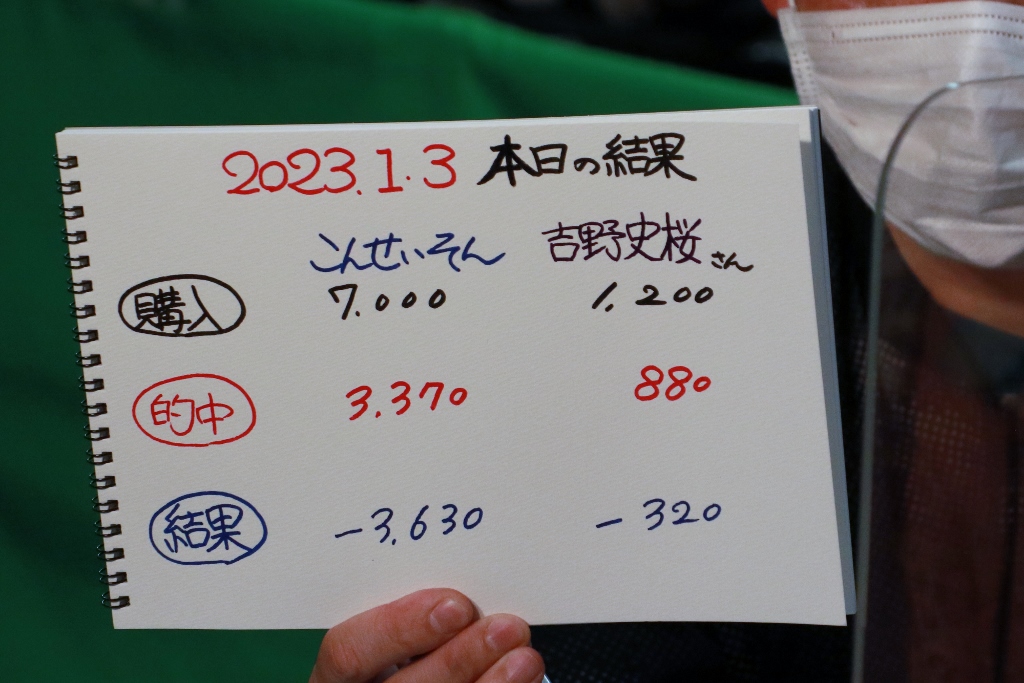 2023.1.3 本日の結果
こんせいそん 吉野史桜さん
購入 7.000 1.200
的中 3.370 880
結果 -3.630 -320